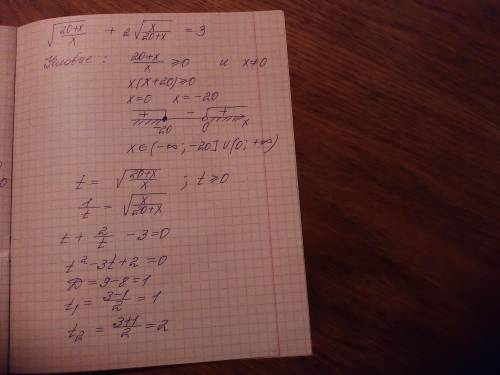 √((20+x)/x) + 2√(x/(20+x)) = 3
Условие: (20+x)/x ≥0 и x≠0
x(x+20)≥0
x=0 x=-20
+ - +
-20 0 x
x∈(-∞; -20]∪(0; +∞)
t = √((20+x)/x) ; t≥0
1/t = √(x/(20+x))
t + 2/t - 3=0
t²-3t+2=0
D=9-8=1
t₁ = (3-1)/2 = 1
t₂ = (3+1)/2 = 2